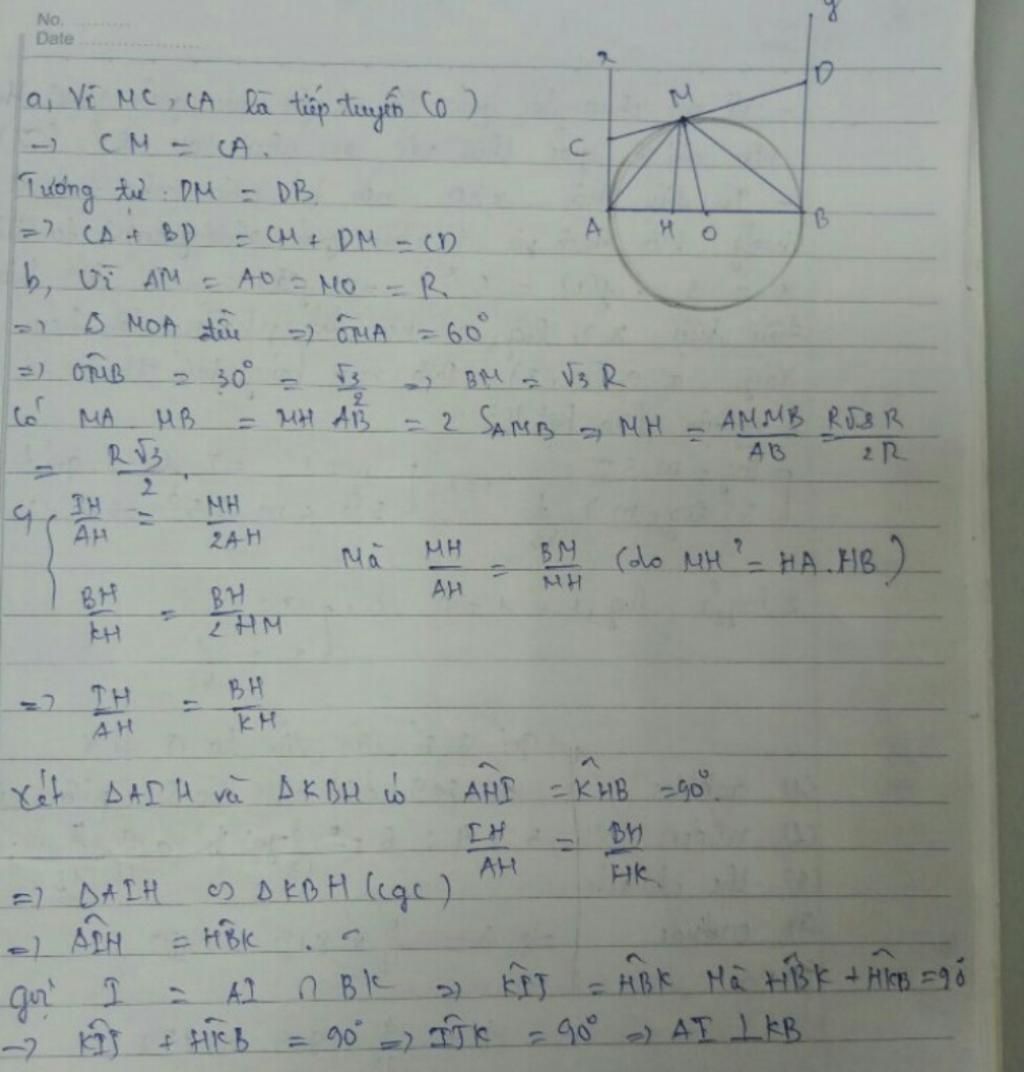 No. ..........
Date ..................
a, Vì MC, CA là tiếp tuyến (O)
=> CM = CA.
Tương tự : DM = DB
=> CA + BD = CM + DM = CD
b, Vì AM = AO = MO = R.
=> Δ MOA đều => OMA = 60°
=> OMB = 30° = √3/2 => BM = √3 R
Có MA MB = MH AB = 2 S AMB => MH = AM MB/AB = R√3 R/2R
= R√3/2.
c, { IH/AH = MH/2AH
Mà MH/AH = BM/MH (do MH² = HA.HB)
BH/KH = BH/2HM
=> IH/AH = BH/KH
Xét ΔAIH và ΔKBH có AHI = KHB = 90°.
IH/AH = BH/HK
=> ΔAIH ∽ ΔKBH (cgc)
=> AIH = HBK .
gọi I = AI ∩ BK => KIJ = HBK Mà HBK + HKB = 90
=> KIJ + HKB = 90° => IJK = 90° => AI ⊥ KB
x
y
D
M
C
A
H
O
B